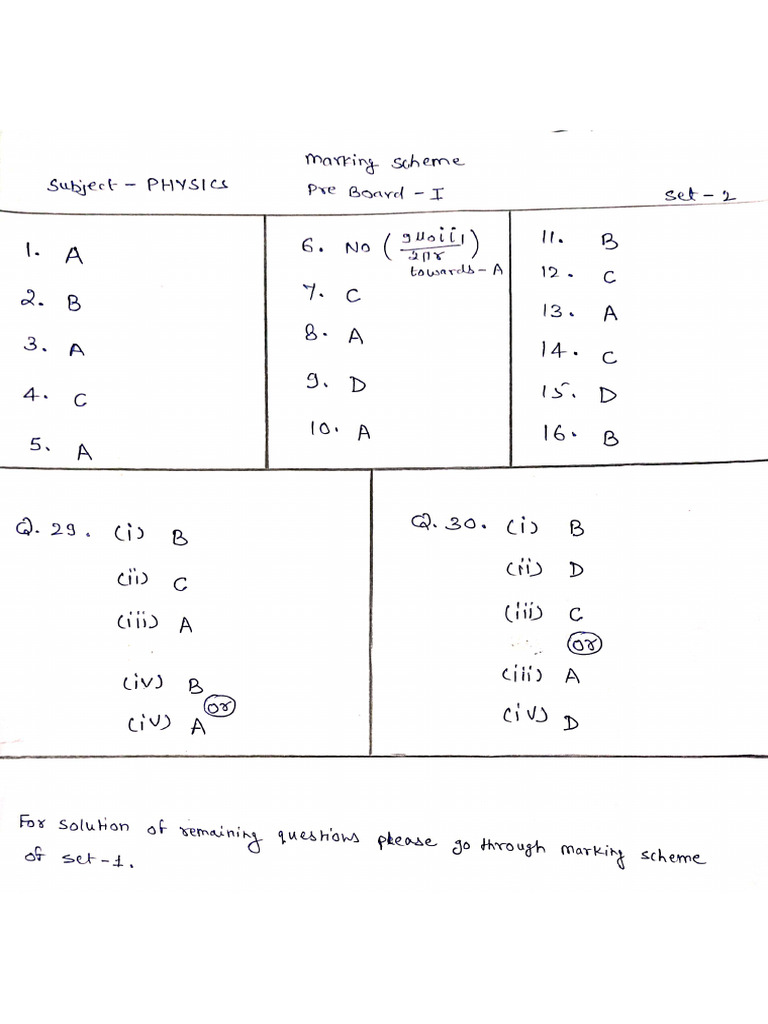 Marking Scheme
Subject - PHYSICS
Pre Board - I
Set - 2
1. A
2. B
3. A
4. C
5. A
6. No (9μ₀ii₁/2πr)
towards - A
7. C
8. A
9. D
10. A
11. B
12. C
13. A
14. C
15. D
16. B
Q. 29. (i) B
(ii) C
(iii) A
(iv) B
or
(iv) A
Q. 30. (i) B
(ii) D
(iii) C
or
(iii) A
(iv) D
For solution of remaining questions please go through marking scheme
of set-1.